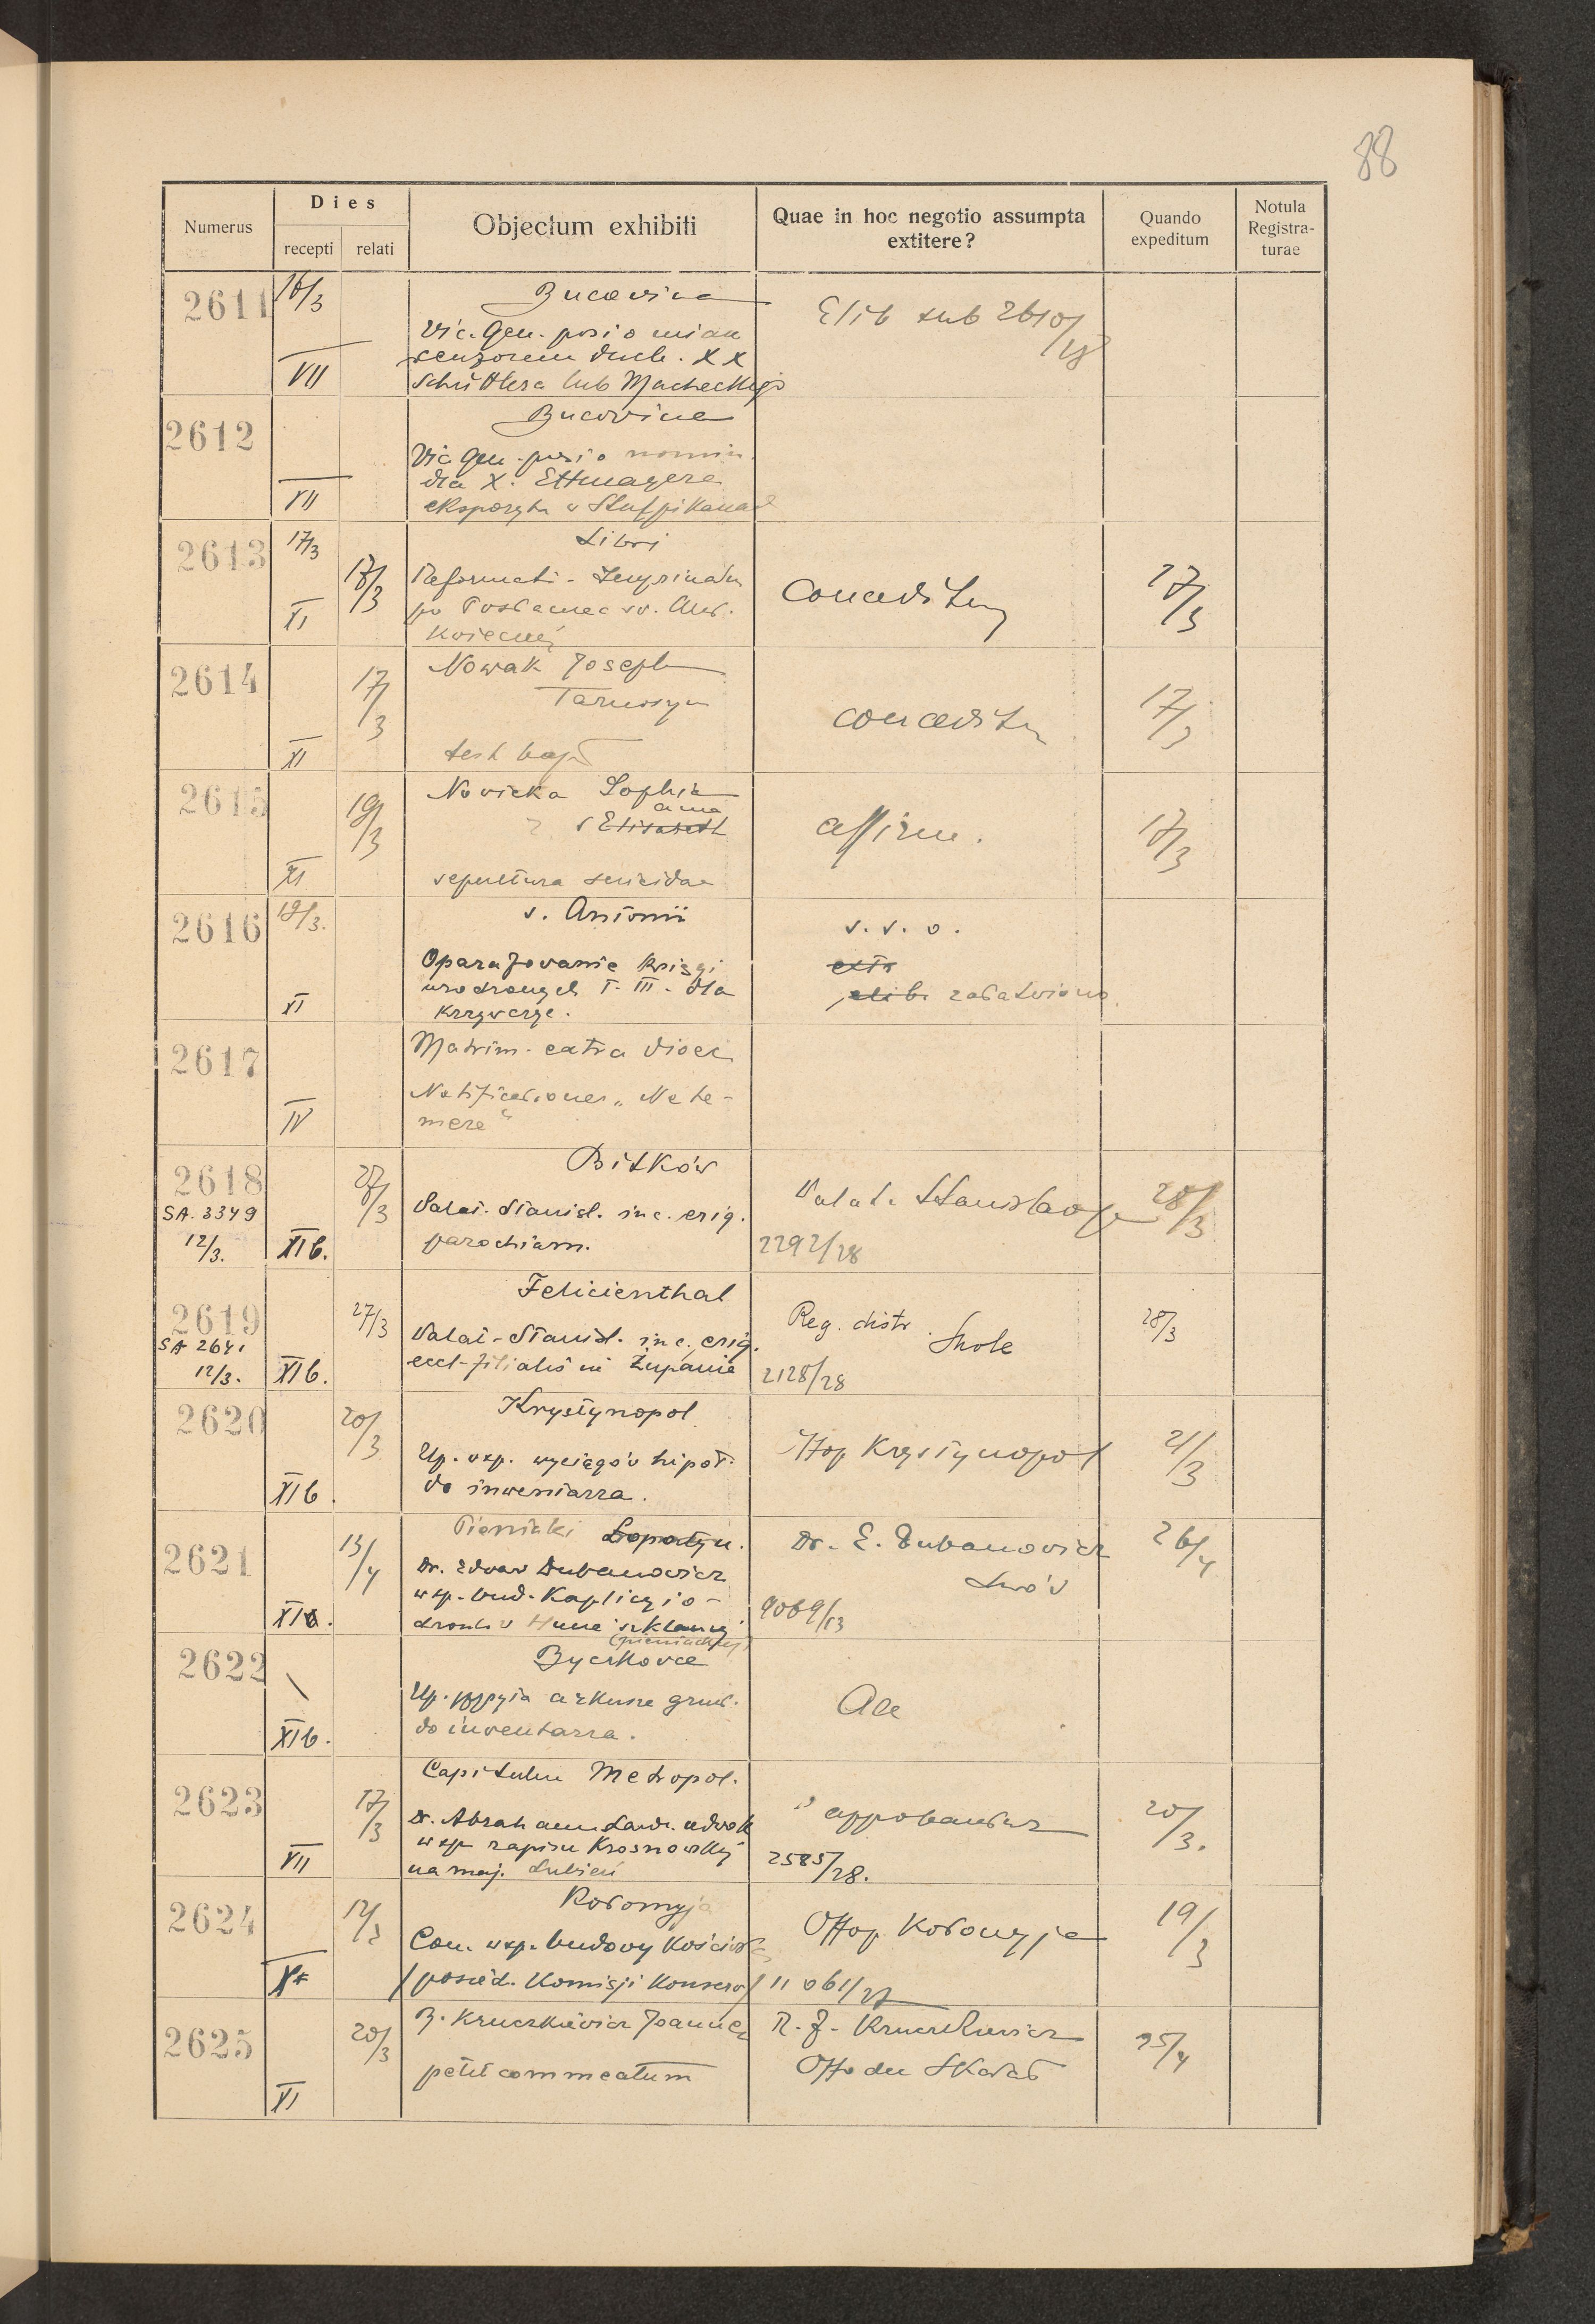 88
Numerus
Dies
recepti
relati
Objectum exhibiti
Quae in hoc negotio assumpta
extitere?
Quando
expeditum
Notula
Registra-
turae
2611
16/3
VII
Bucovina
Vic. Gen. prosi o mian
cenzorem duch. XX
Schüttlera lub Macheckiego
2610/28
2612
VII
Bucovina
Vic. Gen. prosi o nomin.
dla X. Ettmayera
eksporyta w
2613
17/3
XI
17/3
Libri
Reformati -
po
Conceditur
17/3
2614
XI
17/3
Nowak Joseph
test bapt
conceditur
17/3
2615
XI
19/3
Novicka Sophia
s Elisabeth
sepultura suicidae
affirm.
17/3
2616
19/3.
XI
s. Antonii
Oparafowanie księgi
urodzonych T. III. dla
Krzywczyc.
v. s. o.
alibi załatwiono.
2617
IV
Matrim. extra dioec
Notificationes "Ne te-
mere"
2618
SA. 3349
12/3.
XIb.
27/3
Bitków
Valai. Stanisl. in c. erig.
parochiam.
2292/28
28/3
2619
SA 2641
12/3.
XIb.
27/3
Felicienthal
Valai - Stanisl. in c. erig.
eccl. filialis in Żupanie
Reg. distr.
Skole
2128/28
28/3
2620
XIb.
20/3
Krystynopol
Up. wsp. wyciągów hipot.
do inwentarza.
Offop Krystynopol
21/3
2621
13/4
Pieniaki Łopatyn.
Dr. Edwar Dubanowicz
wsp. bud. Kaplicy i o-
Hucie szklanej
(pieniackiej)
Dr. E. Dubanowicz
Lwów
9069/13
26/4
2622
XIb.
Byczkowce
arkusze grunt.
do inventarza.
Ala
2623
VII
17/3
Capitulum Metropol.
Dr. Abraham Land. adwok
wsp zapisu Krosnowskiej
na maj. Lubień
approbantur
2585/28.
20/3.
2624
Kołomyja
Con. wsp. budowy kościoła
/posied. Komisji Konserw/
Offop Kołomyja
11061/27
19/3
2625
XI
20/3
Z. Kruczkiewicz Joannes
petit commeatum
R. J. Kruczkiewicz
Skałat
25/4